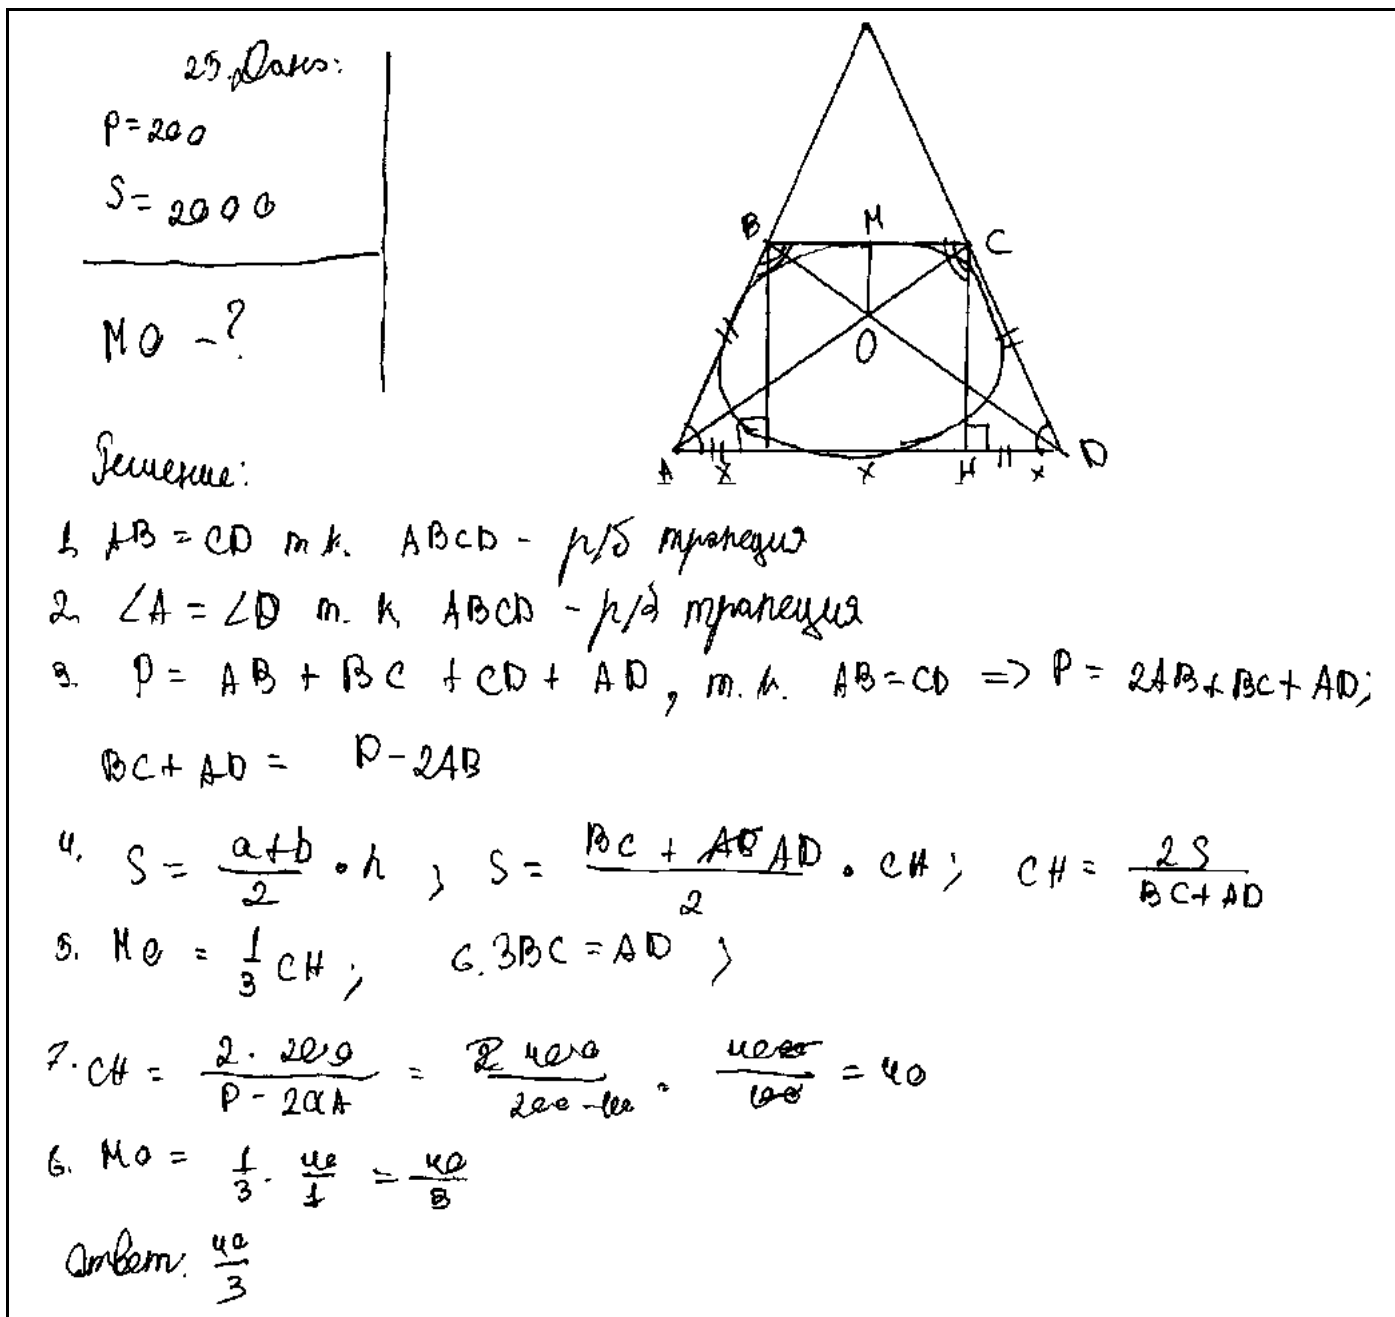 25. Дано:
P=200
S=2000
MO -?
B M C
O
A x x H x D
Решение:
1. AB = CD т.к. ABCD - р/б трапеция
2. ∠A = ∠D т.к ABCD - р/б трапеция
3. P = AB + BC + CD + AD, т.к. AB=CD => P = 2AB+BC+AD;
BC+AD = P-2AB
4. S = \frac{a+b}{2} · h ; S = \frac{BC + AD}{2} · CH; CH = \frac{2S}{BC+AD}
5. MO = \frac{1}{3} CH; 6. 3BC = AD ;
7. CH = = = = 40
6. MO = \frac{1}{3} · \frac{40}{1} = \frac{40}{3}
Ответ: \frac{40}{3}